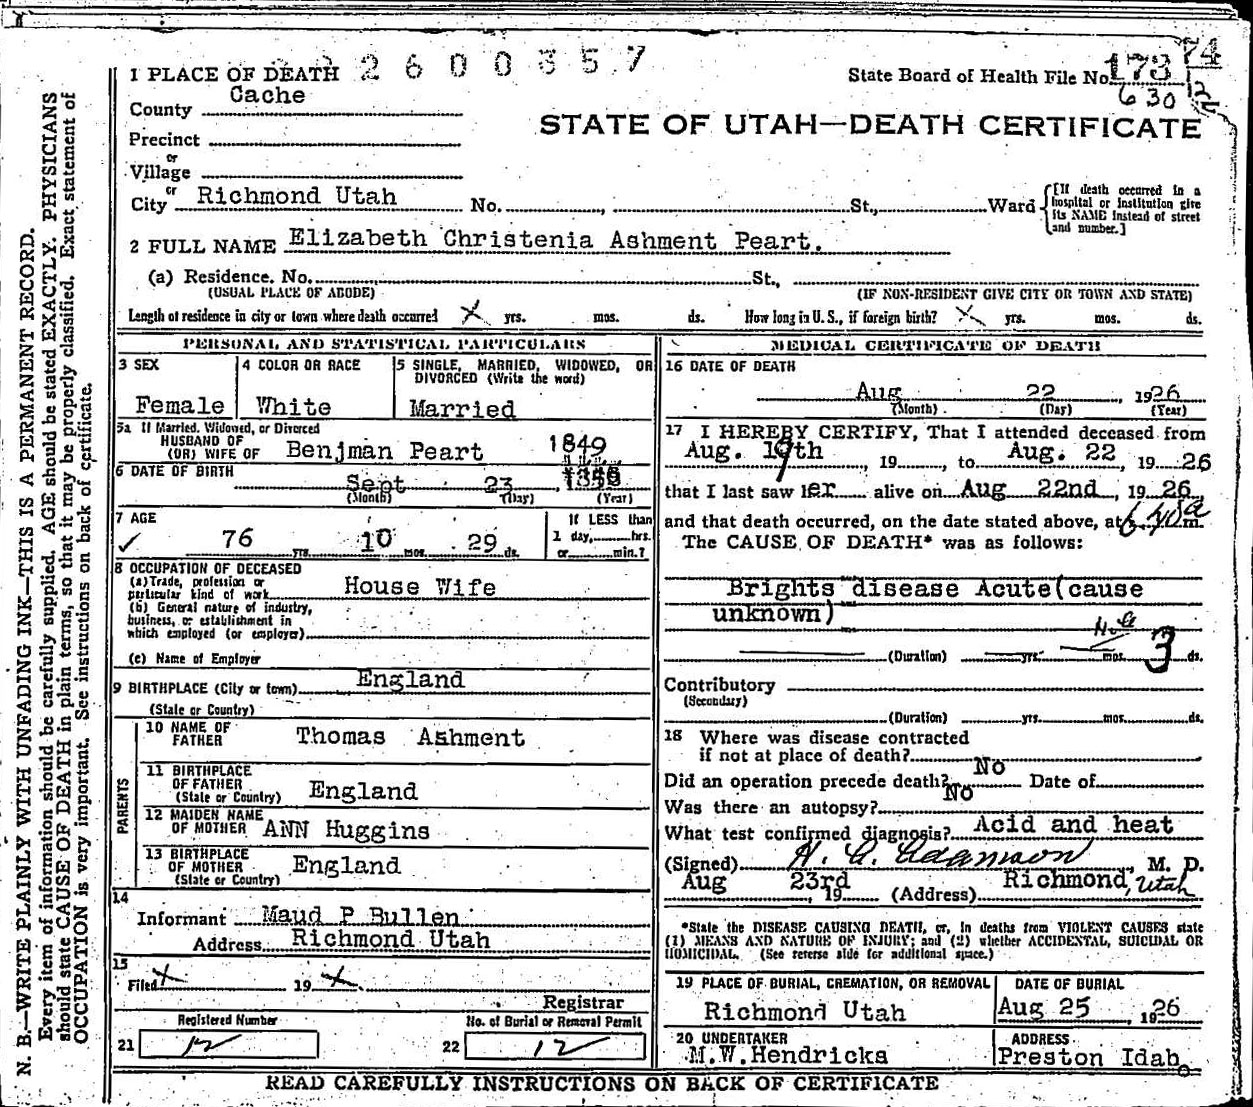 2600657
1 PLACE OF DEATH
State Board of Health File No. 173 74
630
County Cache
STATE OF UTAH—DEATH CERTIFICATE
Precinct
or
Village
or
City Richmond Utah No. St., Ward
[If death occurred in a hospital or institution give its NAME instead of street and number.]
2 FULL NAME Elizabeth Christenia Ashment Peart.
(a) Residence. No. St.,
(USUAL PLACE OF ABODE) (IF NON-RESIDENT GIVE CITY OR TOWN AND STATE)
Length of residence in city or town where death occurred X yrs. mos. ds. How long in U. S., if foreign birth? X yrs. mos. ds.
PERSONAL AND STATISTICAL PARTICULARS
3 SEX
Female
4 COLOR OR RACE
White
5 SINGLE, MARRIED, WIDOWED, OR DIVORCED (Write the word)
Married
5a If Married, Widowed, or Divorced
HUSBAND OF
(OR) WIFE OF Benjman Peart
1849
6 DATE OF BIRTH
Sept 23
(Month) (Day) (Year)
7 AGE
✓ 76 yrs. 10 mos. 29 ds.
If LESS than
1 day, hrs.
or min.?
8 OCCUPATION OF DECEASED
(a) Trade, profession or
particular kind of work House Wife
(b) General nature of industry,
business, or establishment in
which employed (or employer)
(c) Name of Employer
9 BIRTHPLACE (City or town) England
(State or Country)
PARENTS
10 NAME OF
FATHER Thomas Ashment
11 BIRTHPLACE
OF FATHER
(State or Country) England
12 MAIDEN NAME
OF MOTHER ANN Huggins
13 BIRTHPLACE
OF MOTHER England
(State or Country)
14
Informant Maud P Bullen
Address Richmond Utah
15
Filed X 19 X
Registrar
Registered Number
21 12
No. of Burial or Removal Permit
22 12
MEDICAL CERTIFICATE OF DEATH
16 DATE OF DEATH
Aug 22, 1926
(Month) (Day) (Year)
17 I HEREBY CERTIFY, That I attended deceased from
Aug. 19th, 19, to Aug. 22, 19 26
that I last saw her alive on Aug 22nd, 19 26,
and that death occurred, on the date stated above, at 6.40a m.
The CAUSE OF DEATH* was as follows:
Brights disease Acute(cause
unknown)
(Duration) yrs. mos. 3 ds.
Contributory
(Secondary)
(Duration) yrs. mos. ds.
18 Where was disease contracted
if not at place of death?
Did an operation precede death? No Date of
Was there an autopsy? No
What test confirmed diagnosis? Acid and heat
(Signed) H. A. Adamson, M. D.
Aug 23rd, 19 (Address) Richmond, Utah
*State the DISEASE CAUSING DEATH, or, in deaths from VIOLENT CAUSES state
(1) MEANS AND NATURE OF INJURY; and (2) whether ACCIDENTAL, SUICIDAL OR
HOMICIDAL. (See reverse side for additional space.)
19 PLACE OF BURIAL, CREMATION, OR REMOVAL
Richmond Utah
DATE OF BURIAL
Aug 25, 1926
20 UNDERTAKER
M.W.Hendricks
ADDRESS
Preston Idaho
READ CAREFULLY INSTRUCTIONS ON BACK OF CERTIFICATE
N. B.—WRITE PLAINLY WITH UNFADING INK—THIS IS A PERMANENT RECORD.
Every item of information should be carefully supplied. AGE should be stated EXACTLY. PHYSICIANS
should state CAUSE OF DEATH in plain terms, so that it may be properly classified. Exact statement of
OCCUPATION is very important. See instructions on back of certificate.